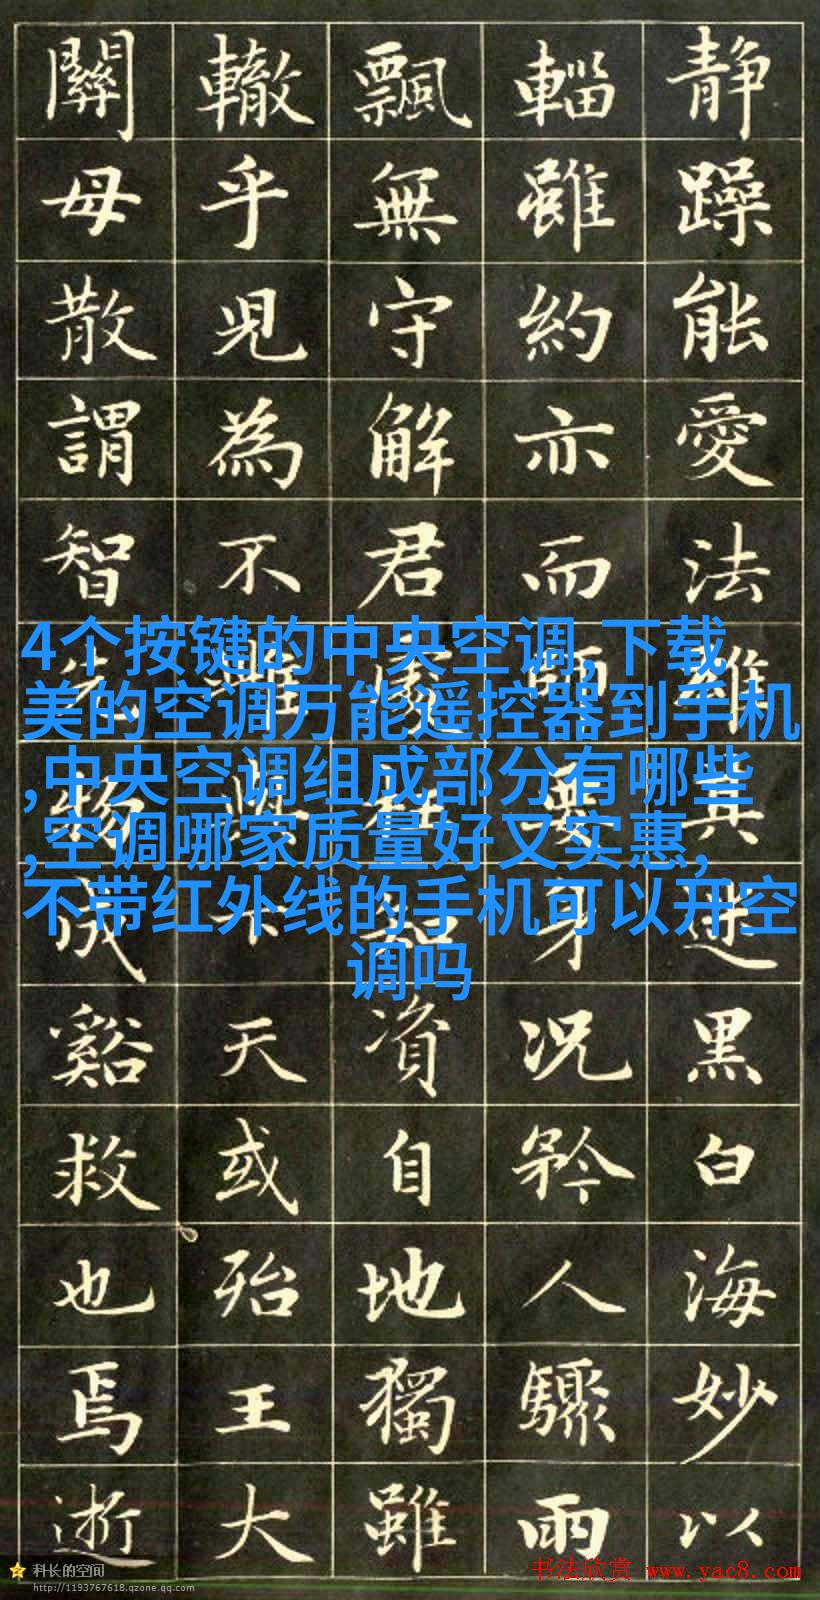 静躁能愛法黑白海妙以
輜雖約亦而師要身況矜人驟雨
飄無守解君處資自地獨雖
轍乎見為不天或殆王大
關毋散謂智物成谿救也焉逝
4个按键的中央空调,下载
美的空调万能遥控器到手机
,中央空调组成部分有哪些
,空调哪家质量好又实惠,
不带红外线的手机可以开空
调吗
科长的空间
http://1193767618.qzone.qq.com
书法欣赏 www.yac8.com